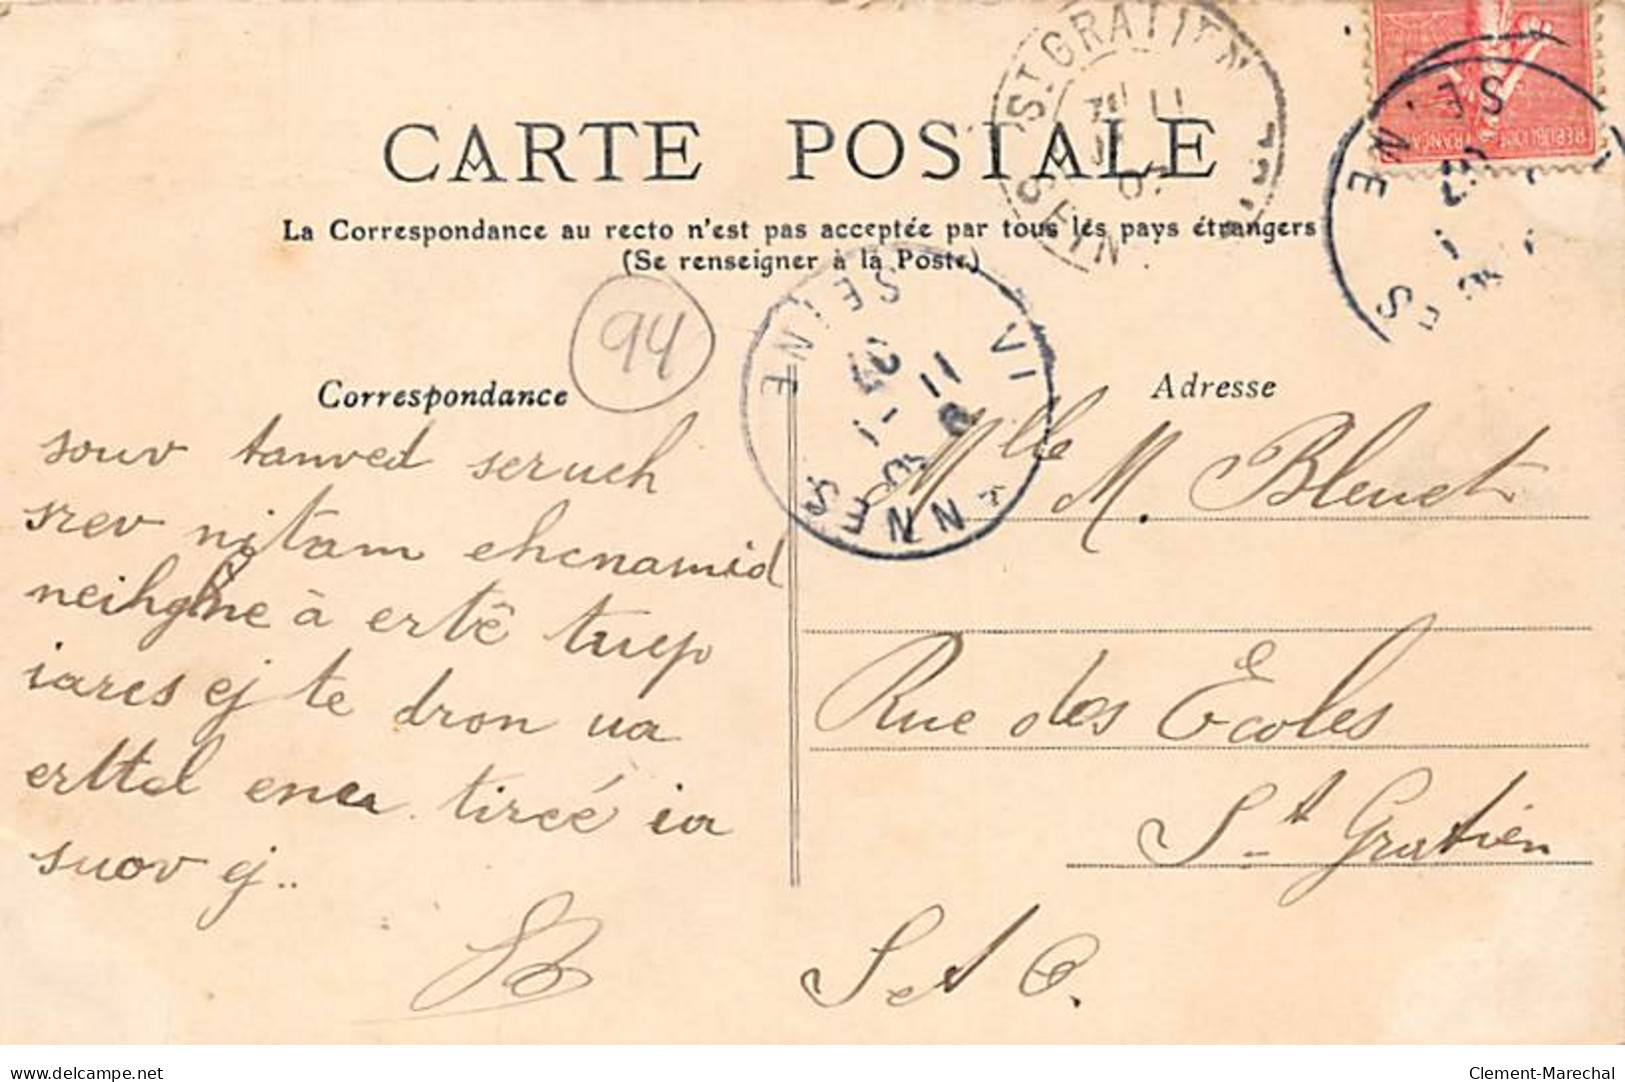 CARTE POSTALE
La Correspondance au recto n'est pas acceptée par tous les pays étrangers
(Se renseigner à la Poste.)
94
Correspondance
Adresse
souv tanved serueh
srev nitam ehcnamid
neihgne à ertê tuep
iares ej te dron ua
erttel enu tircé ia
suov ej..
SB
Mlle M. Bleuet
Rue des Ecoles
St Gratien
S et O.
ST GRATIEN
SEINE
11
VINCENNES
SEINE
11
1
07
REPUBLIQUE FRANÇAISE
Clement-Marechal
delcampe.net